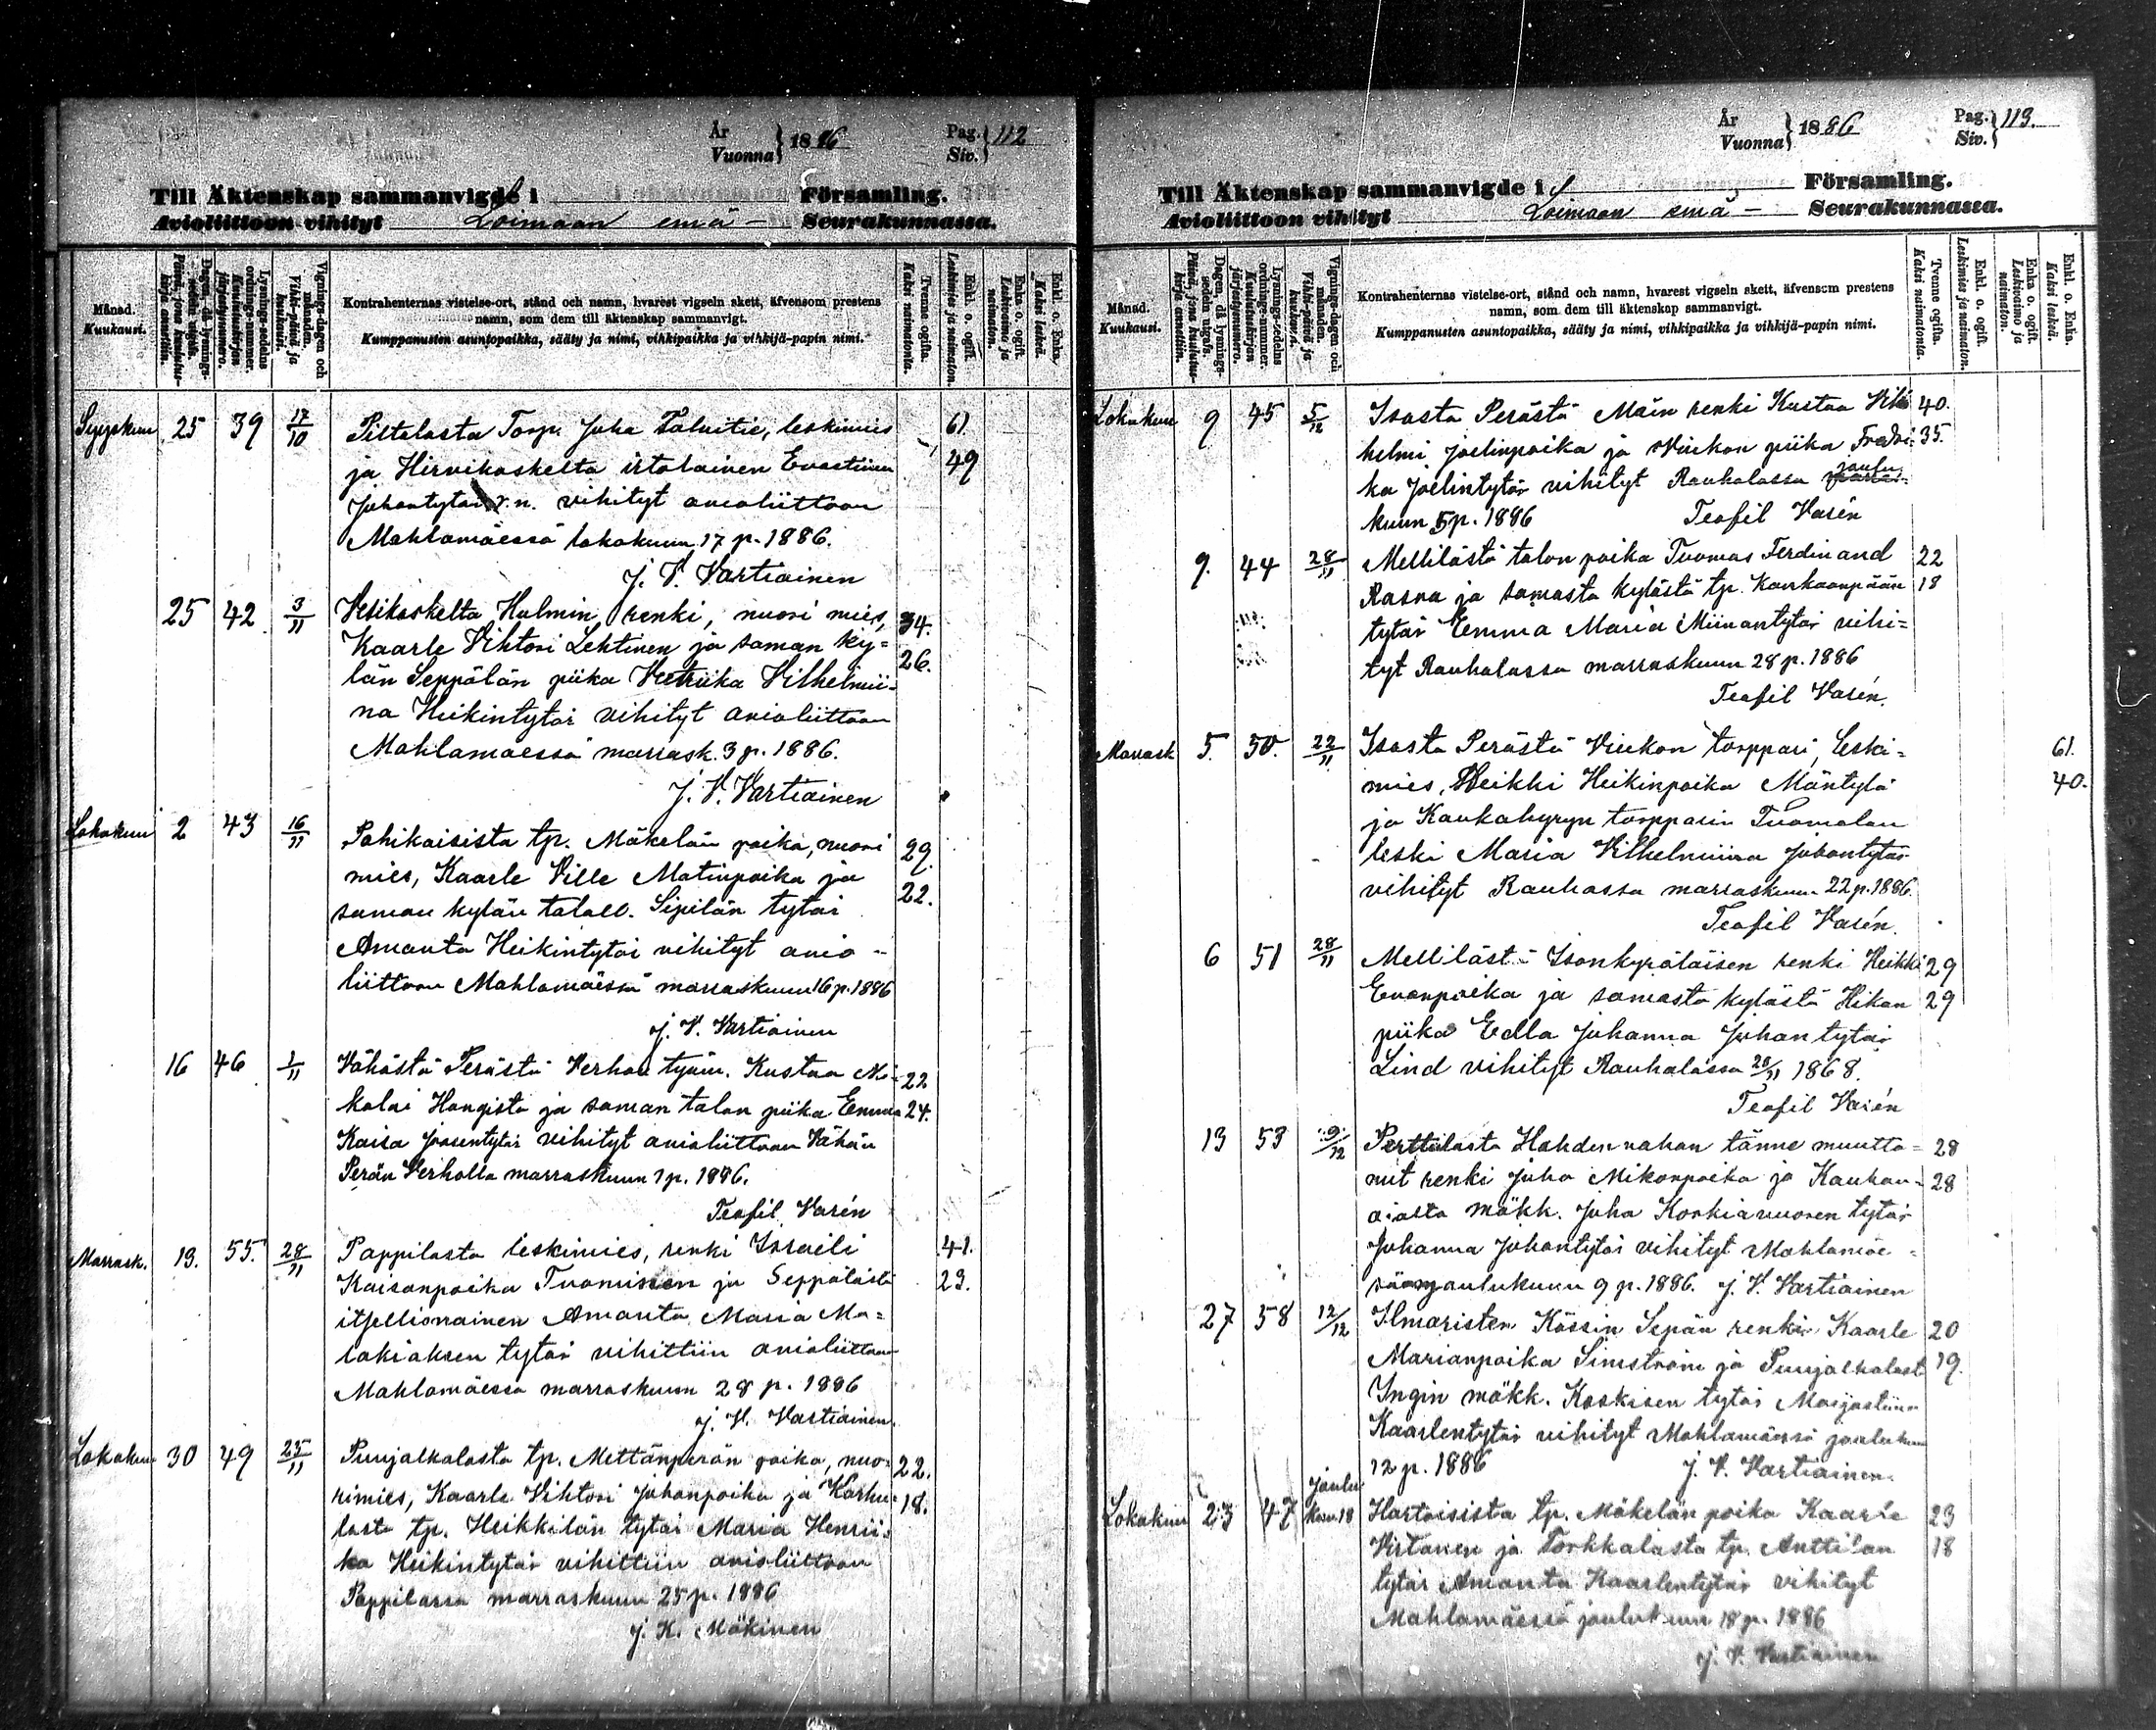 År
Vuonna } 1886 Pag.
Siv. } 112
Till Äktenskap sammanvigde i Församling.
Avioliittoon vihityt Loimaan emä- Seurakunnassa.
Månad.
Kuukausi.
Dagen, då lysnings-sedeln utgafs.
Päivä, jona kuulutuskirja annettiin.
Lysnings-sedelns ordnings-nummer.
Kuulutuskirjan järjestysnumero.
Vignings-dagen och månaden.
Vihki-päivä ja kuukausi.
Kontrahenternas vistelse-ort, stånd och namn, hvarest vigseln skett, äfvensom prestens
namn, som dem till äktenskap sammanvigt.
Kumppanusten asuntopaikka, sääty ja nimi, vihkipaikka ja vihkijä-papin nimi.
Tvenne ogifta.
Kaksi naimatonta.
Enkl. o. ogift.
Leskimies ja naimaton.
Enka o. ogift.
Leskivaimo ja naimaton.
Enkl. o. Enka.
Kaksi leskeä.
Syyskuu 25 39 17/10 Piltolasta Torp. Juha Taluitie, leskimies 61.
ja Hirvikoskelta irtolainen Evastiina 49
Juhantytär v.n. vihityt avioliittoon
Mahlamäessä lokakuun 17 p. 1886.
J. V. Vartiainen
25 42 3/11 Vesikoskelta Hulmin renki, nuori mies, 34.
Kaarle Vihtori Lehtinen ja saman ky= 26.
län Seppälän piika Vetriika Vilhelmii-
na Heikintytär vihityt avioliittoon
Mahlamäessä marrask. 3 p. 1886.
J. V. Vartiainen
Lokakuu 2 43 16/11 Pahikaisista tp. Mäkelän poika, nuori 29.
mies, Kaarle Ville Matinpoika ja 22.
saman kylän talall. Sipilän tytär
Amanta Heikintytär vihityt avio-
liittoon Mahlamäessä marraskuun 16 p. 1886
J. V. Vartiainen
16 46 1/11 Vähästä Perästä Verhon työm. Kustaa Ni- 22
kolai Hongisto ja saman talon piika Emma 24.
Kaisa Joosentytär vihityt avioliittoon Vähän
Perän Verholla marraskuun 1 p. 1886.
Teofil Vasén
Marrask. 13. 55. 28/11 Pappilasta leskimies, renki Israeli 41.
Kaisanpoika Tuominen ja Seppälästä 23.
itsellisnainen Amanta Maria Ma=
lakiaksen tytär vihittiin avioliittoon
Mahlamäessä marraskuun 28 p. 1886
J. V. Vartiainen.
Lokakuu 30 49 25/11 Puujalkalasta tp. Mettänperän poika, nuo= 22.
rimies, Kaarle Vihtori Juhanpoika ja Karhu- 18.
lasta tp. Heikkilän tytär Maria Henrii-
ka Heikintytär vihittiin avioliittoon
Pappilassa marraskuun 25 p. 1886
J. K. Mäkinen
År
Vuonna } 1886 Pag.
Siv. } 113.
Till Äktenskap sammanvigde i Församling.
Avioliittoon vihityt Loimaan emä- Seurakunnassa.
Månad.
Kuukausi.
Dagen, då lysnings-sedeln utgafs.
Päivä, jona kuulutuskirja annettiin.
Lysnings-sedelns ordnings-nummer.
Kuulutuskirjan järjestysnumero.
Vignings-dagen och månaden.
Vihki-päivä ja kuukausi.
Kontrahenternas vistelse-ort, stånd och namn, hvarest vigseln skett, äfvensom prestens
namn, som dem till äktenskap sammanvigt.
Kumppanusten asuntopaikka, sääty ja nimi, vihkipaikka ja vihkijä-papin nimi.
Tvenne ogifta.
Kaksi naimatonta.
Enkl. o. ogift.
Leskimies ja naimaton.
Enka o. ogift.
Leskivaimo ja naimaton.
Enkl. o. Enka.
Kaksi leskeä.
Lokakuu 9 45 5/12 Isosta Perästä Mäin renki Kustaa Vil- 40.
helmi Joelinpoika ja Viukon piika Fredri- 35.
ka Joelintytär vihityt Rauhalassa joulu
kuun 5 p. 1886 Teofil Vasén
9. 44 28/11 Mellilästä talon poika Tuomas Ferdinand 22
Rasva ja samasta kylästä tp. Kankaanpään 18
tytär Emma Maria Miinantytär vihi=
tyt Rauhalassa marraskuun 28 p. 1886
Teofil Vasén.
Marrask 5. 50. 22/11 Isosta Perästä Viukon torppari, Leski= 61.
mies, Heikki Heikinpoika Mäntylä 40.
ja Kaukahyryn torpparin Tuomolan
leski Maria Vilhelmiina Juhontytär
vihityt Rauhassa marraskuun 22 p. 1886.
Teofil Vasén.
6 51 28/11 Mellilästä Isonkyröläisen renki Heikki 29
Evanpoika ja samasta kylästä Hikan 29
piika Edla Johanna Juhantytär
Lind vihityt Rauhalassa 28/11 1868.
Teofil Vasén
13 53 9/12 Perttulasta Hahdennahan tänne muutta= 28
nut renki Juho Mikonpoika ja Kauhan- 28
ojalta mäkk. Juha Korkiavuoren tytär
Johanna Juhontytär vihityt Mahlamäe=
ssä joulukuun 9 p. 1886. J. V. Vartiainen
27 58 12/12 Ilmaristen Kässin Sepän renki Kaarle 20
Marianpoika Simström ja Puujalkalast 19.
Yngin mäkk. Koskisen tytär Maijastiina
Kaarlentytär vihityt Mahlamäessä joulukuun
12 p. 1886 J. V. Vartiainen.
Lokakuu 23 47 Joulu kuun 18 Hartoisista tp. Mäkelän poika Kaarle 23
Virtanen ja Torkkalasta tp. Anttilan 18
tytär Amanta Kaarlentytär vihityt
Mahlamäessä joulukuun 18 p. 1886
J. V. Vartiainen